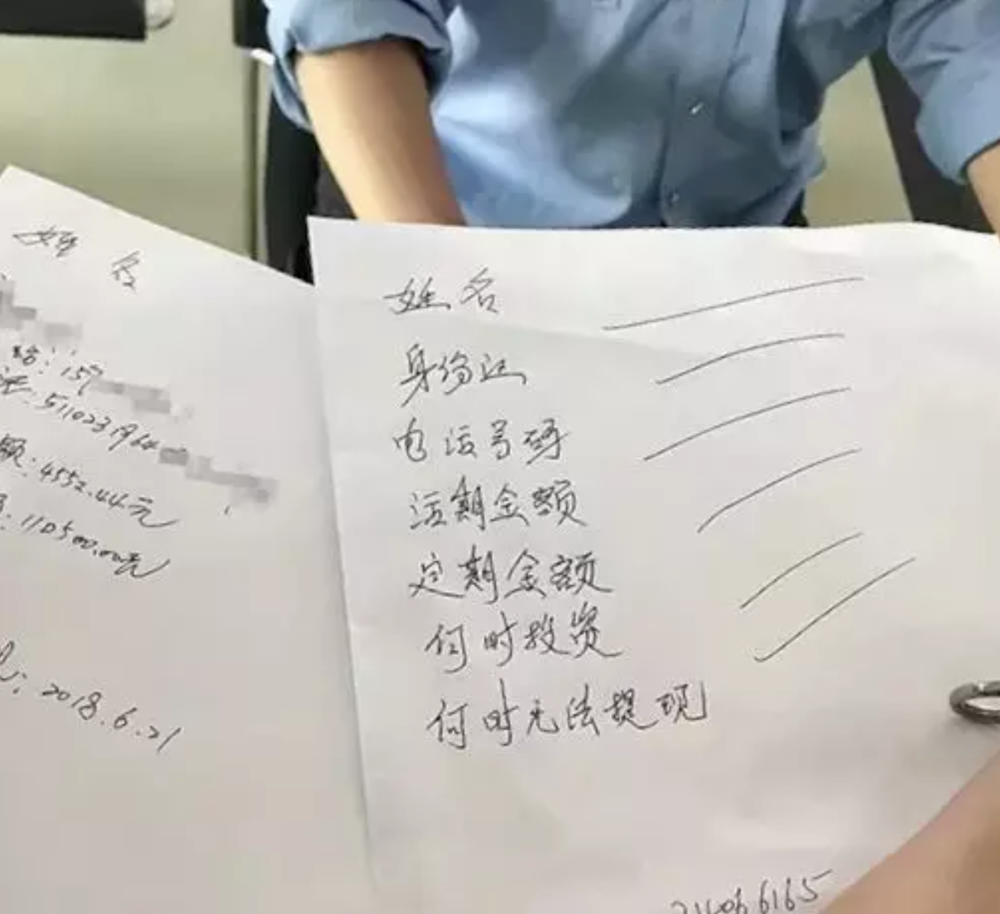 姓名
话：157
证：511023196
额：4552.44元
：110500.00元
：2018.6.21
姓名
身份证
电话号码
活期金额
定期金额
何时投资
何时无法提现
6165